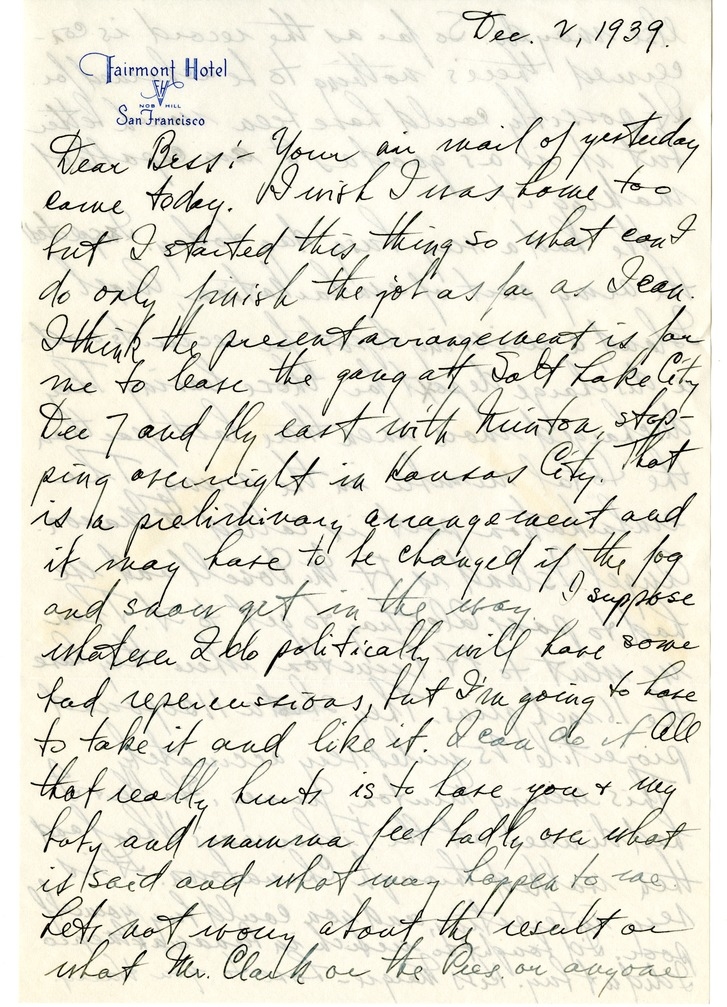 Dec. 2, 1939.
Fairmont Hotel
FH
NOB HILL
San Francisco
Dear Bess:- Your air mail of yesterday
came today. I wish I was home too
but I started this thing so what can I
do only finish the job as far as I can.
I think the present arrangement is for
me to leave the gang at Salt Lake City
Dec 7 and fly east with Minton, stop-
ping overnight in Kansas City. That
is a preliminary arrangement and
it may have to be changed if the fog
and snow get in the way. I suppose
whatever I do politically will have some
bad repercussions, but I'm going to have
to take it and like it. I can do it. All
that really hurts is to have you & my
baby and mamma feel badly over what
is said and what may happen to me
Lets not worry about the result or
what Mr. Clark or the Pres. or anyone